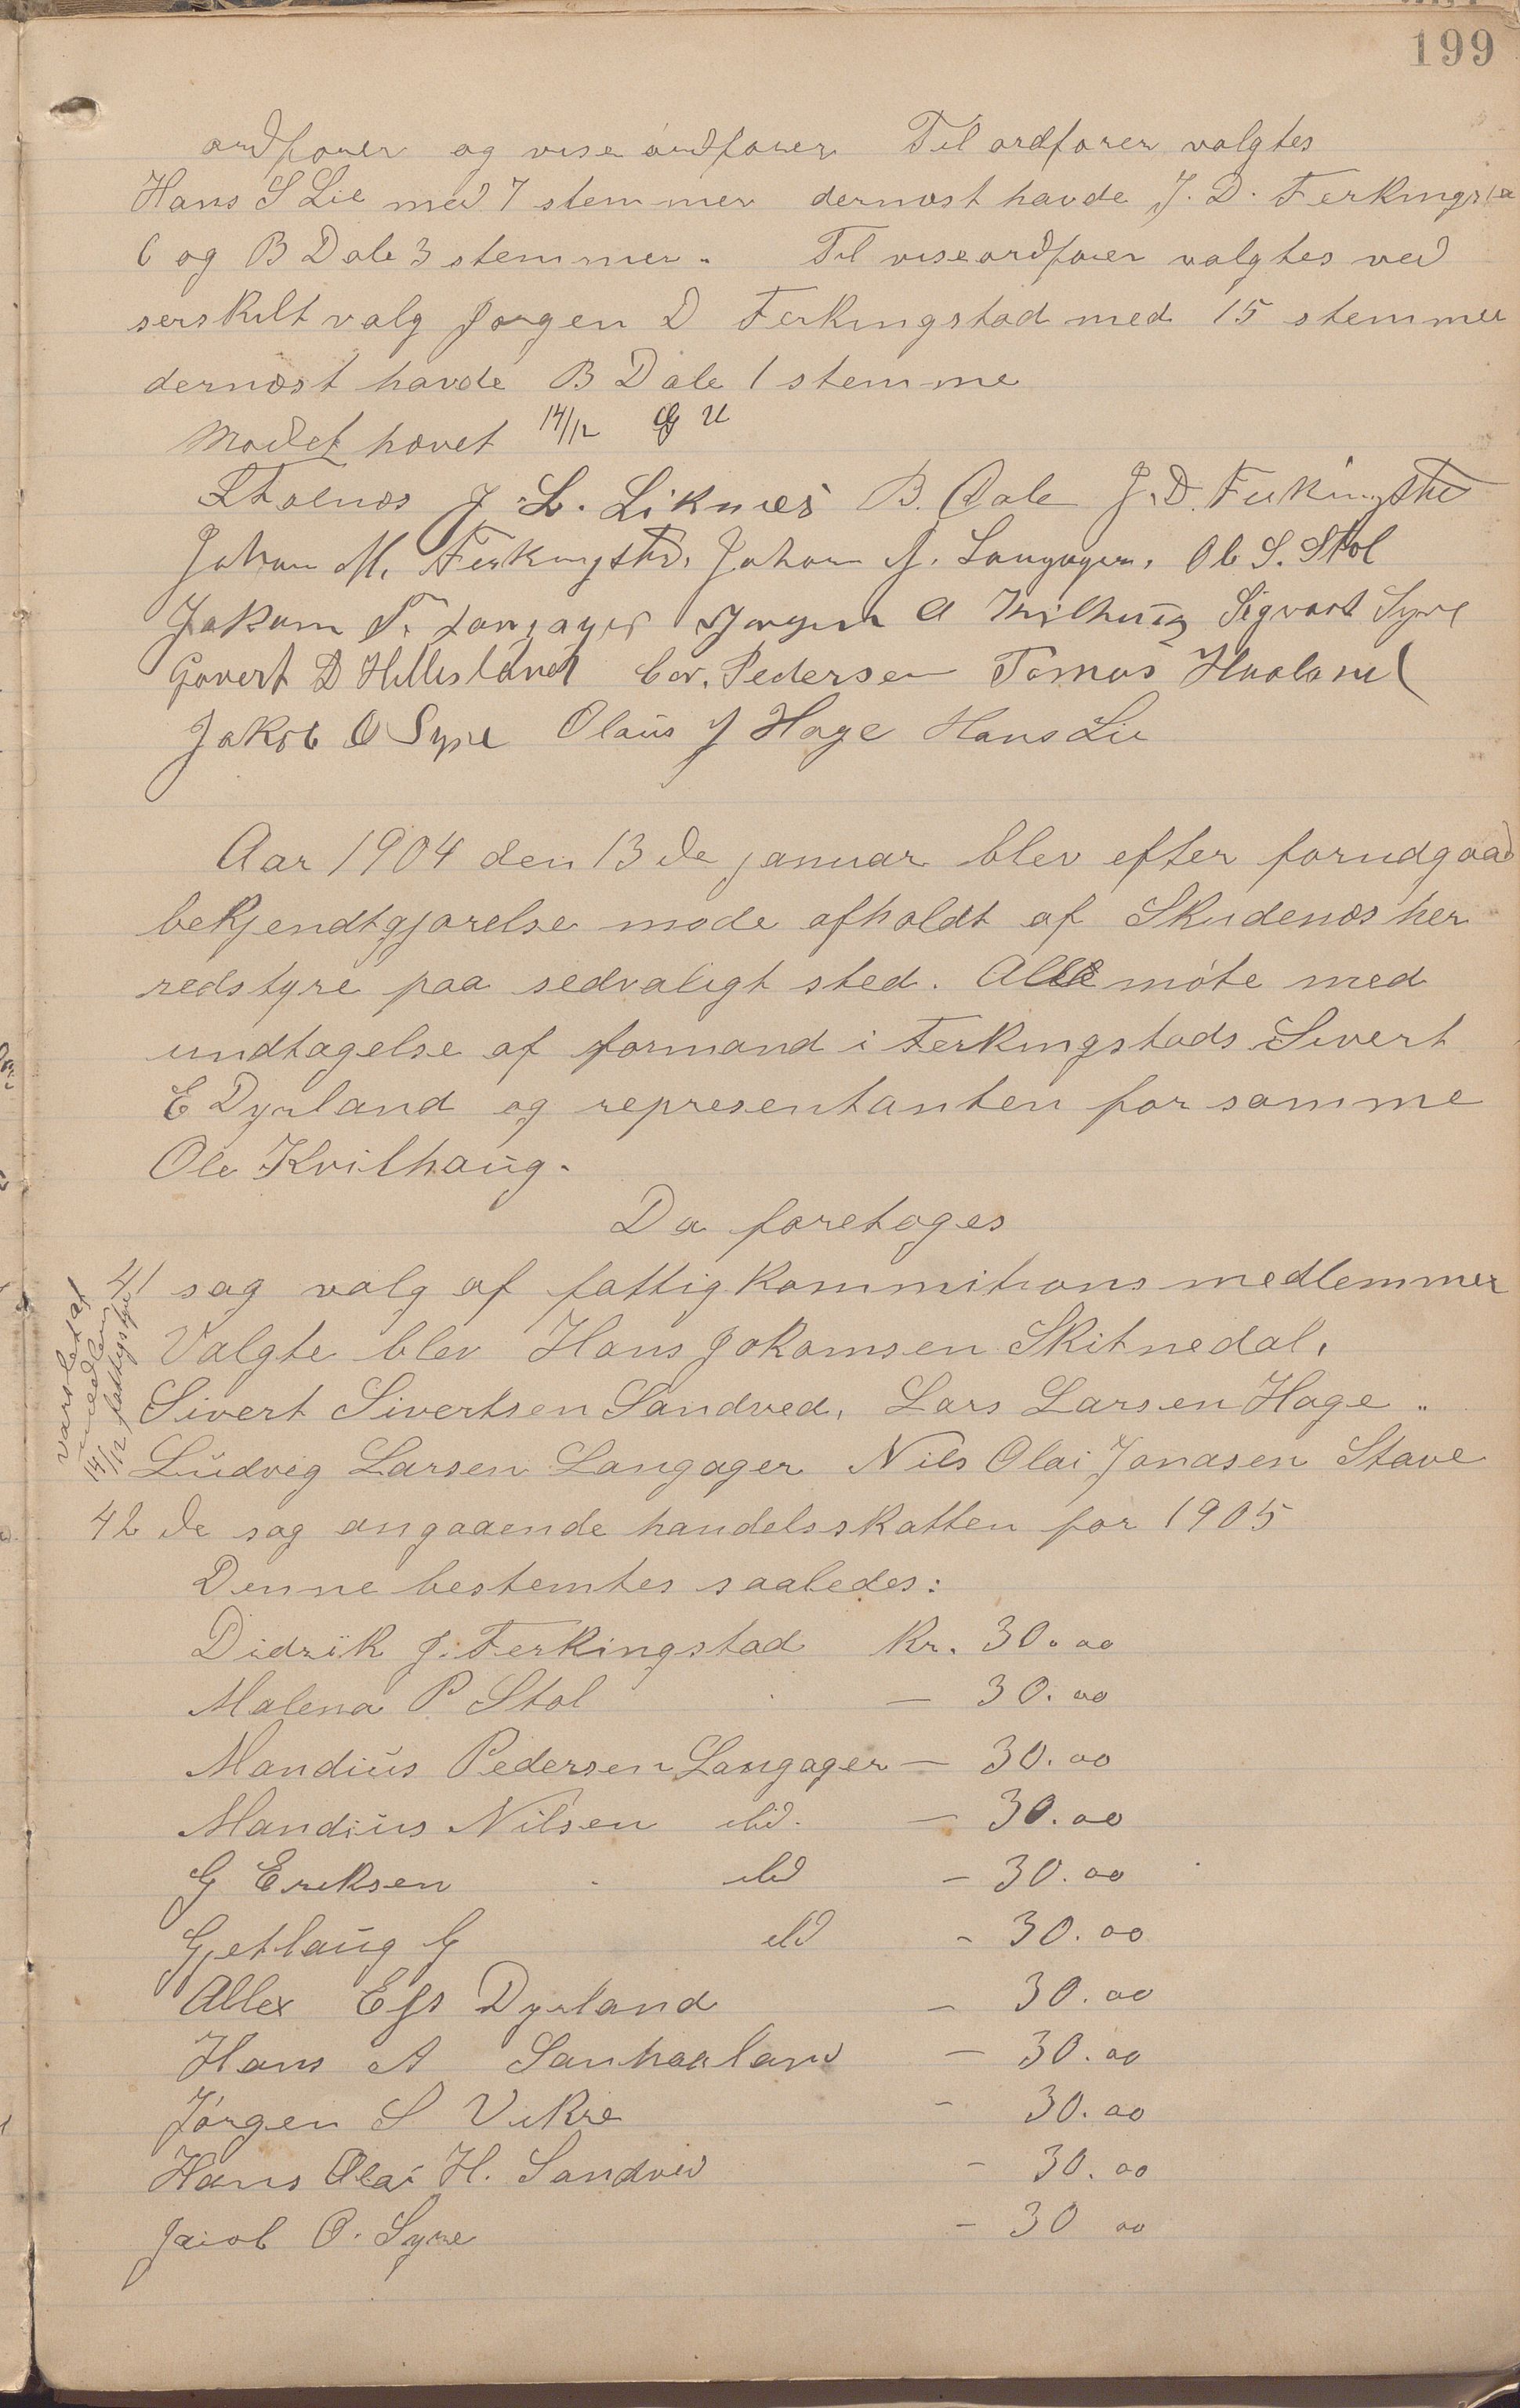 199
ordforer og vise ordforer Til ordforer valgtes
Hans S Lie med 7 stemmer dernæst havde J. D. Ferkingsta
6 og B Dale 3 stemmer. Til viseordforer valgtes ved
serskilt valg Jorgen D Ferkingstad med 15 stemmer
dernæst havde B Dale 1 stemme
Modet hævet 14/12
J. L. Liknæs B. Dale J. D. Ferkingstad
Johan M. Ferkingstd. Johan J. Langager. Ob S. Stol
Jakom Langager Jorgen A Kvilhaug Sigvart Syre
Govert D Hillesland Cor. Pedersen Tomas Haaland
Jakob O Syre Olaus J Hage Hans Lie
Aar 1904 den 13 de januar blev efter forudgaad
bekjendtgjorelse mode afholdt af Skudenæs her
redstyre paa sedvaligt sted. Alle møte med
undtagelse af formand i Ferkingstads Sivert
E Dyrland og representanten for samme
Ole Kvilhaug.
Da foretoges
41 sag valg af fattigkommitions medlemmer
varslet af
medlem
14/12 fattigstyre
Valgte blev Hans Jokamsen Skitnedal,
Sivert Sivertsen Sandved, Lars Larsen Hage "
Ludvig Larsen Langager Nils Olai Jonasen Stave
42 de sag angaaende handelsskatten for 1905
Denne bestemtes saaledes:
Didrik J. Ferkingstad Kr. 30.00
Malena P Stol — 30.00
Mandius Pedersen Langager — 30.00
Mandius Nilsen ibid. — 30.00
G Eriksen ibid — 30.00
Gjetlaug G ibid - 30.00
Allex Dyrland - 30.00
Hans A Sanhaaland — 30.00
Jørgen S Vikre - 30.00
Hans Olai H. Sandved - 30.00
Jacob O. Syre - 30 00